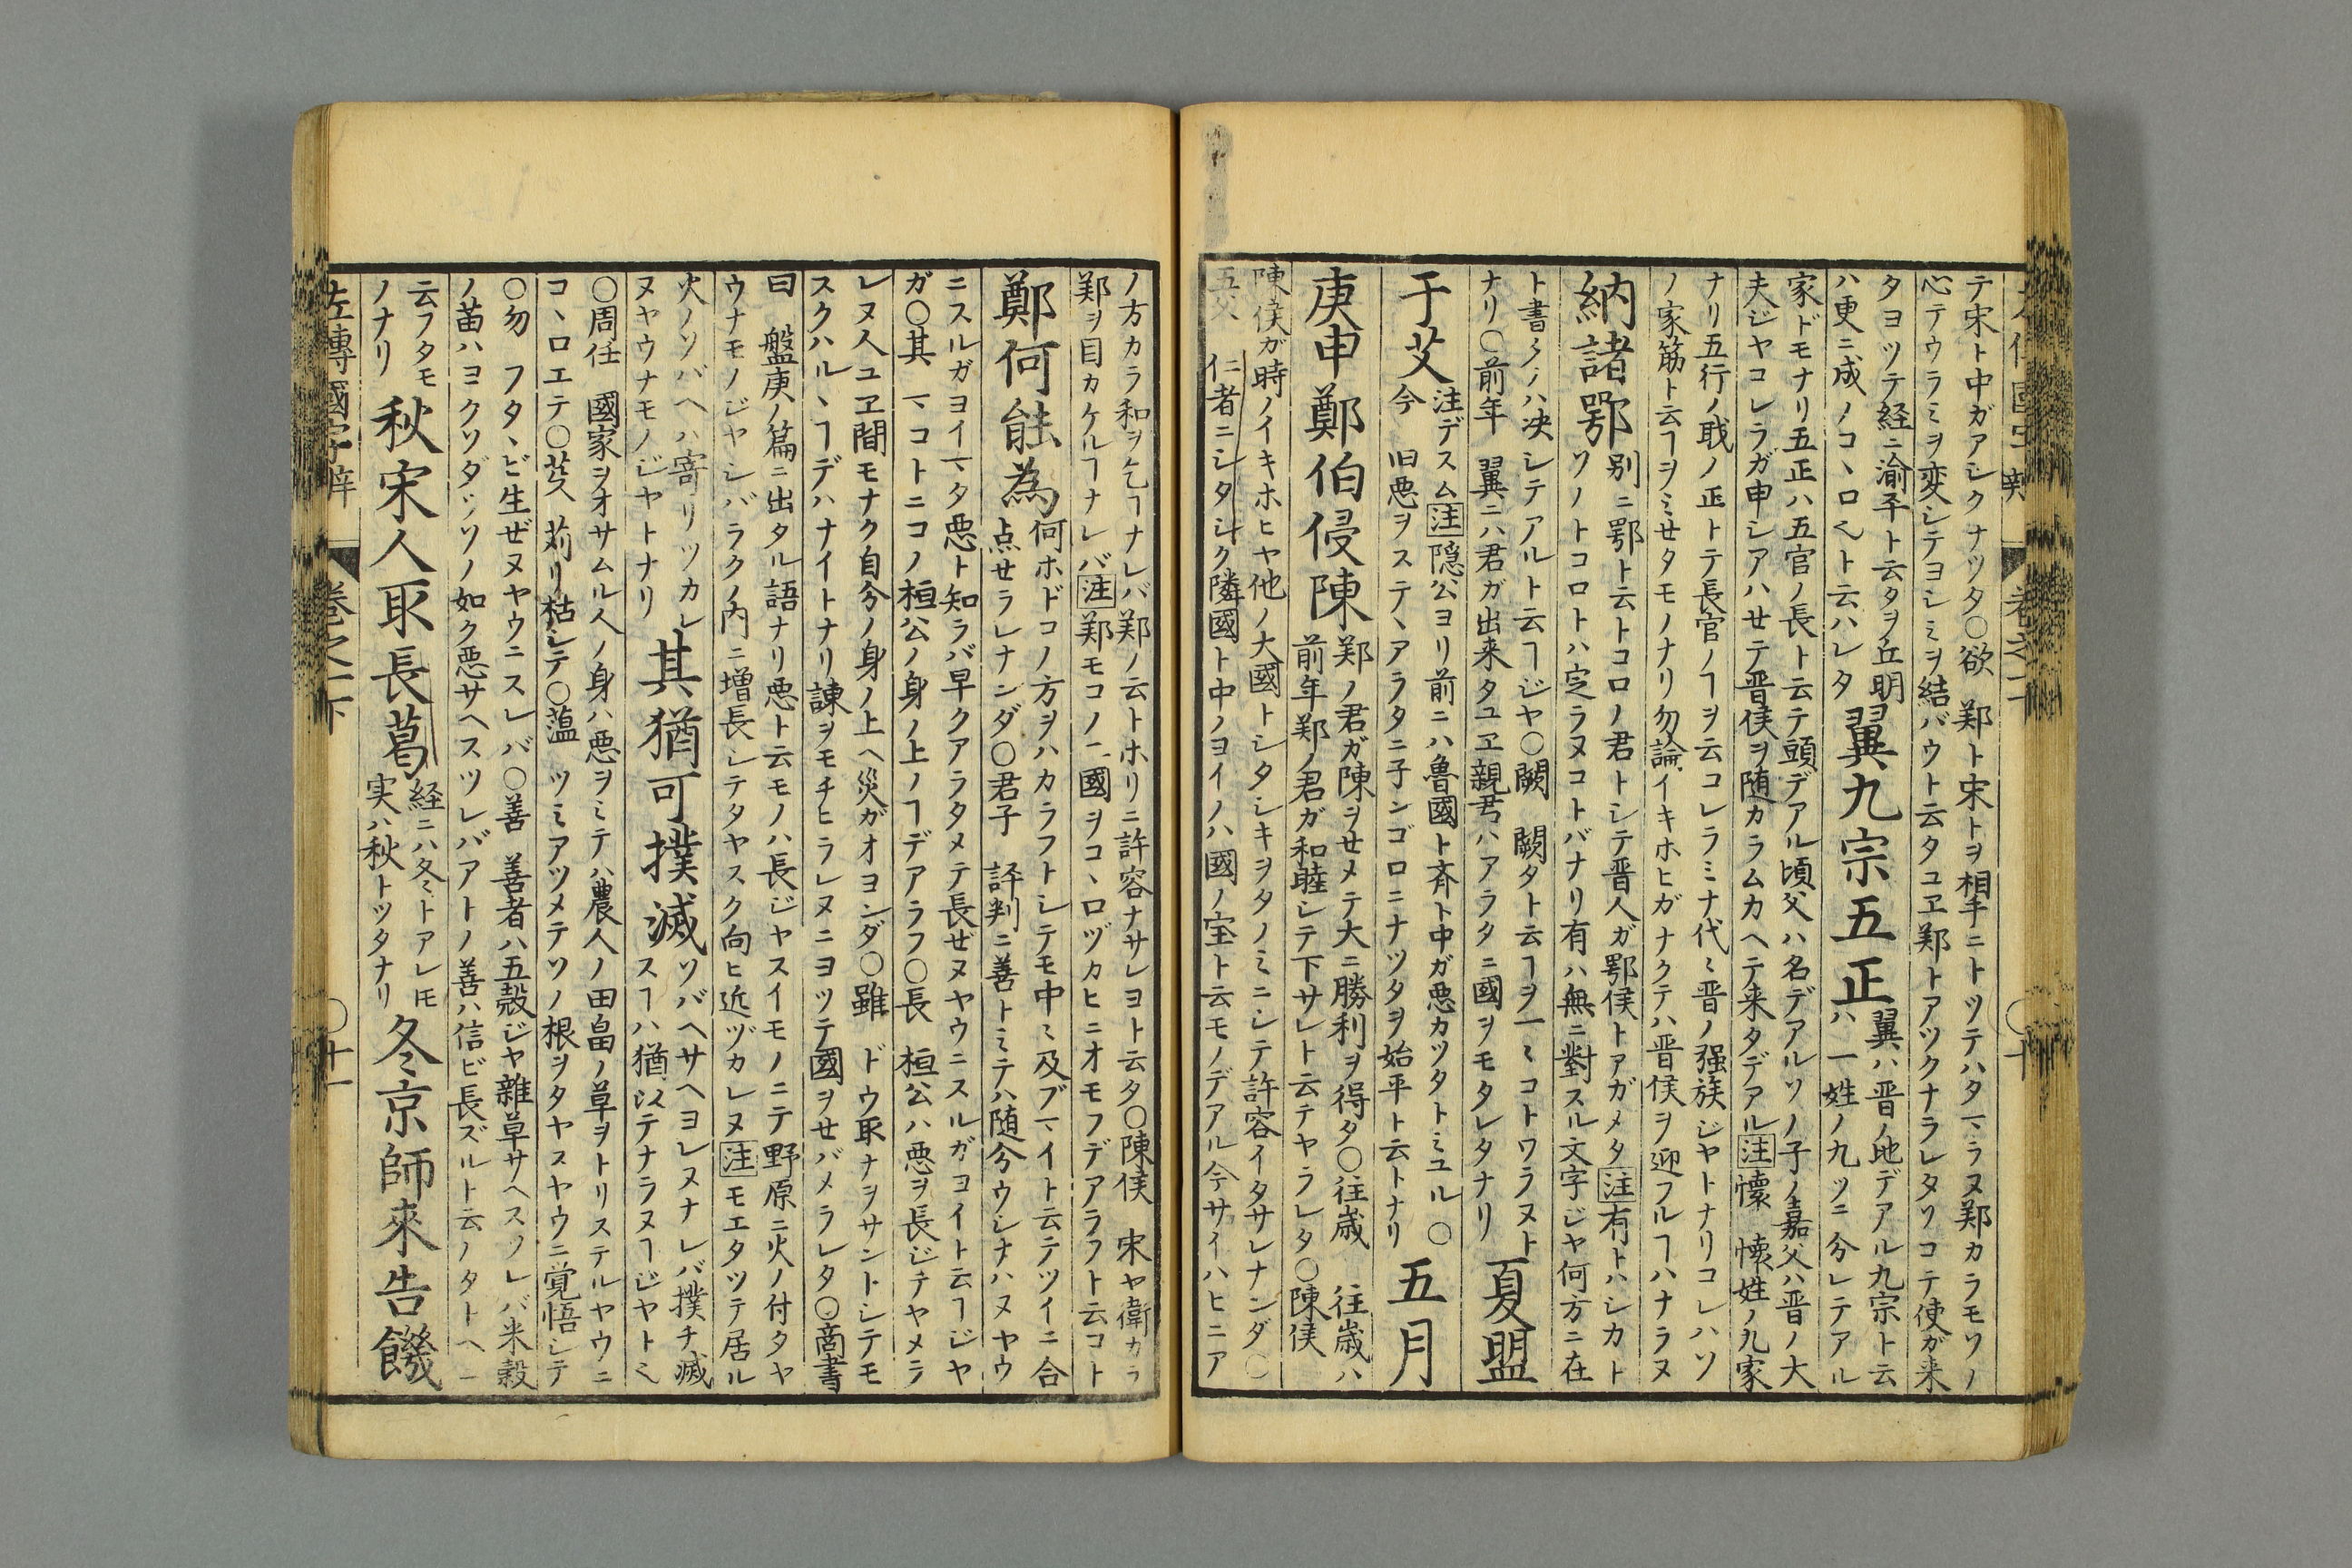 テ宋ト中ガアシクナツタ〇欲 鄭ト宋トヲ相手ニトツテハタマラヌ鄭カラモソノ
心テウラミヲ変シテヨシミヲ結バウト云タユヱ鄭トアツクナラレタソコテ使ガ来
タヨツテ経ニ渝平ト云タヲ丘明
ハ更ニ成ノコヽロヘト云ハレタ
翼九宗五正
翼ハ晋ノ地デアル九宗ト云
ハ一姓ノ九ツニ分レテアル
家ドモナリ五正ハ五官ノ長ト云テ頭デアル頃父ハ名デアルソノ子ノ嘉父ハ晋ノ大
夫ジヤコレラガ申シアハせテ晋侯ヲ随カラムカヘテ来タデアル注懐 懐姓ノ九家
ナリ五行ノ戢ノ正トテ長官ノヿヲ云コレラミナ代〻晋ノ强族ジヤトナリコレハソ
ノ家筋ト云ヿヲミせタモノナリ勿論イキホヒガナクテハ晋侯ヲ迎フルヿハナラヌ
納諸鄂
別ニ鄂ト云トコロノ君トシテ晋人ガ鄂侯トアガメタ注有トハシカト
ソノトコロトハ定ラヌコトバナリ有ハ無ニ對スル文字ジヤ何方ニ在
ト書タハ决シテアルト云ヿジヤ〇闕 闕タト云ヿヲ一〻コトワラヌト
ナリ〇前年 翼ニハ君ガ出来タユヱ親君ハアラタニ國ヲモタレタナリ
夏盟
于艾
注デスム注隠公ヨリ前ニハ魯國ト斉ト中ガ悪カツタトミユル〇
今 旧悪ヲステヽアラタニ子ンゴロニナツタヲ始平ト云トナリ
五月
庚申鄭伯侵陳
鄭ノ君ガ陳ヲせメテ大ニ勝利ヲ得タ〇往歳 往歳ハ
前年鄭ノ君ガ和睦シテ下サレト云テヤラレタ〇陳侯
陳侯ガ時ノイキホヒヤ他ノ大國トシタシキヲタノミニシテ許容イタサレナンダ〇
五父 仁者ニシタシク隣國ト中ノヨイノハ國ノ宝ト云モノデアル今サイハヒニア
ノ方カラ和ヲ乞ヿナレバ鄭ノ云トホリニ許容ナサレヨト云タ〇陳侯 宋ヤ衛カラ
鄭ヲ目カケルヿナレバ注鄭モコノ二國ヲコヽロヅカヒニオモフデアラフト云コト
鄭何能為
何ホドコノ方ヲハカラフトシテモ中〻及ブマイト云テツイニ合
点せラレナンダ〇君子 評判ニ善トミテハ随分ウシナハヌヤウ
ニスルガヨイマタ悪ト知ラバ早クアラタメテ長ぜヌヤウニスルガヨイト云ヿジヤ
ガ〇其 マヽコトニコノ桓公ノ身ノ上ノヿデアラフ〇長 桓公ハ悪ヲ長ジテヤメラ
レヌ人ユヱ間モナク自分ノ身ノ上ヘ災ガオヨンダ〇雖 ドウ取ナヲサントシテモ
スクハルヽヿデハナイトナリ諌ヲモチヒラレヌニヨツテ國ヲせバメラレタ〇商書
曰 盤庚ノ篇ニ出タル語ナリ悪ト云モノハ長ジヤスイモノニテ野原ニ火ノ付タヤ
ウナモノジヤシバラクノ内ニ増長シテタヤスク向ヒ近ヅカレヌ注モエタツテ居ル
火ノソバヘハ寄リツカレ
ヌヤウナモノジヤトナリ
其猶可撲滅
ソバヘサヘヨレヌナレバ撲チ滅
スヿハ猶以テナラヌヿジヤト也
〇周任 國家ヲオサムル人ノ身ハ悪ヲミテハ農人ノ田畠ノ草ヲトリステルヤウニ
コヽロエテ〇芟 苅リ枯シテ〇薀 ツミアツメテソノ根ヲタヤスヤウニ覚悟シテ
〇勿 フタヽビ生ぜヌヤウニスレバ〇善 善者ハ五穀ジヤ雜草サヘスヽレバ米穀
ノ苗ハヨクソダツソノ如ク悪サヘスツレバアトノ善ハ信ビ長ズルト云ノタトヘ
云フタモ
ノナリ
秋宋人取長葛
経ニハ冬ミトアレ𪜈
実ハ秋トツタナリ
冬京師來告饑
左傳國字辯 卷之一下 〇廿一